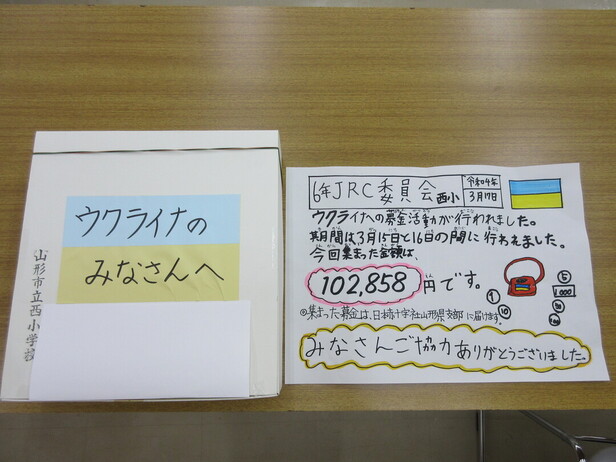 ウクライナの
みなさんへ
山形市立西小学校
6年JRC委員会 西小
令和4年
3月17日
ウクライナへの募金活動が行われました。
期間は3月15日と16日の間に行われました。
今回集まった金額は、
102,858円です。
◎集まった募金は、日本赤十字社山形県支部に届けます。
みなさんご協力ありがとうございました。